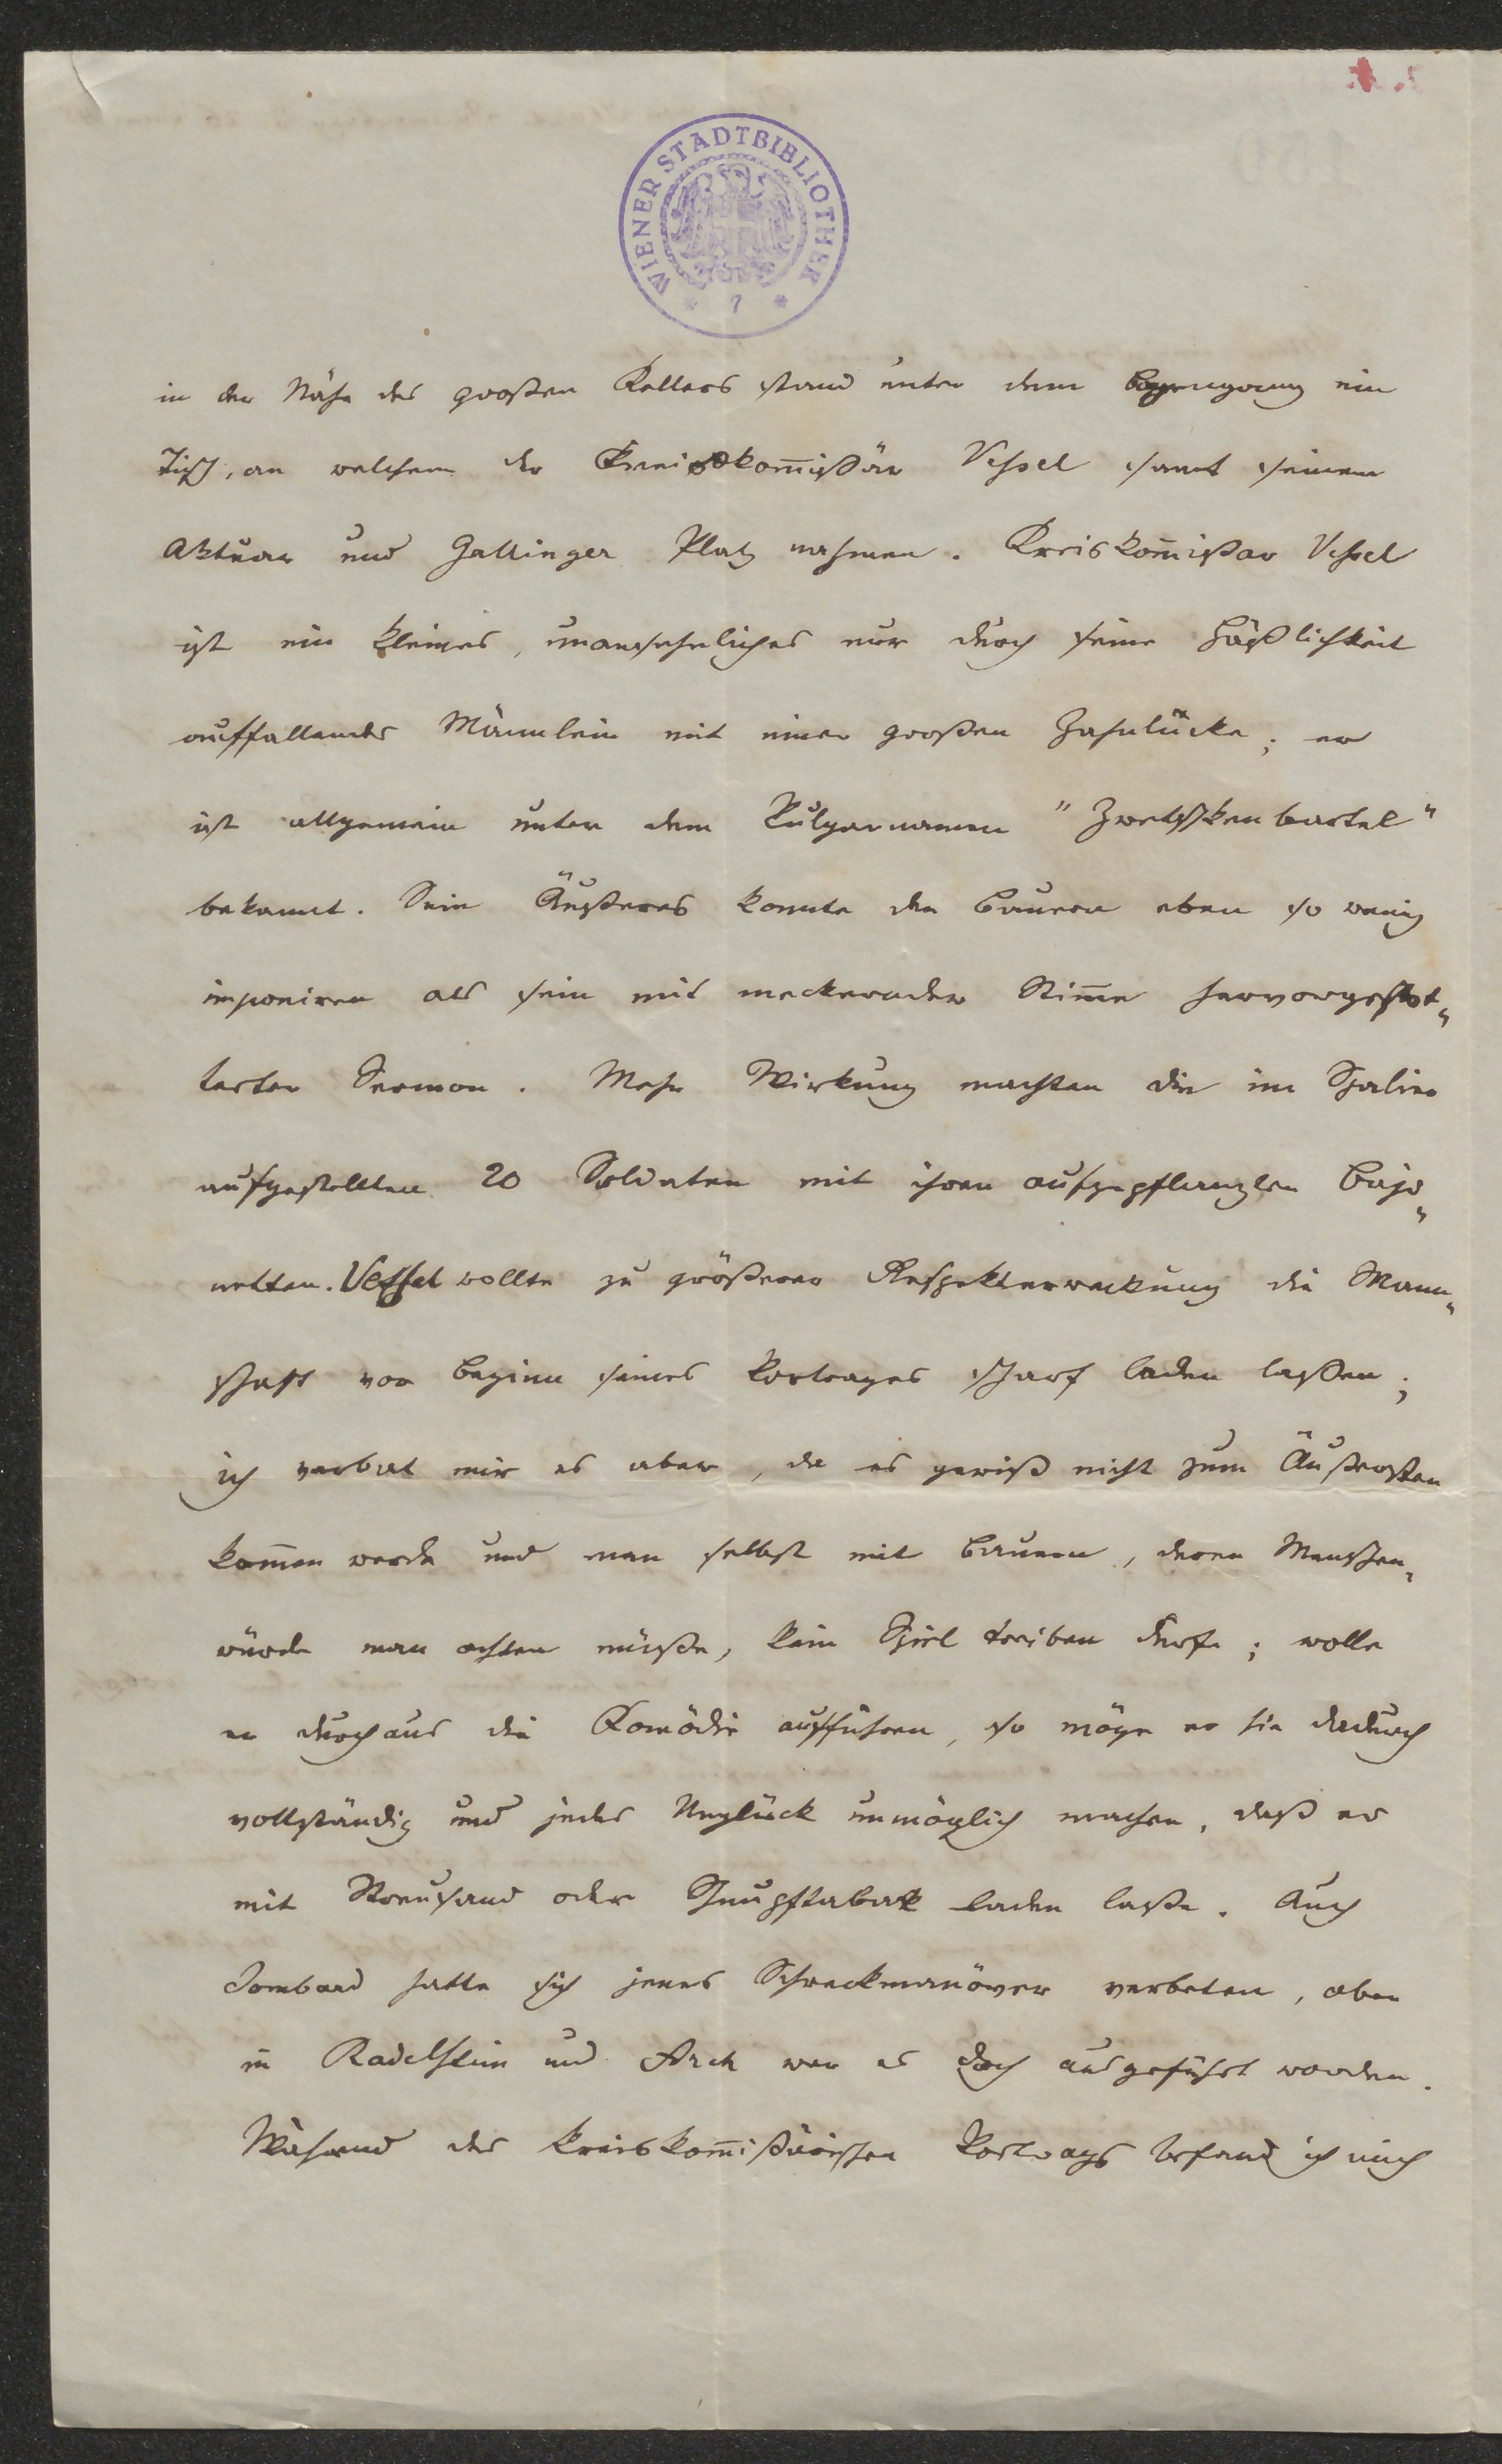 WIENER STADTBIBLIOTHEK
* 7 *
in der Nähe des großen Kellers stand unter dem Bogengang ein
Tisch, an welchem der Kreiskom̅ißär Vessel samt seinem
Aktuar und Gattinger Platz nahmen. Kreiskom̅ißar Vessel
ist ein kleines, unansehnliches nur durch seine Häßlichkeit
auffallendes Männlein mit einer großen Zahnlücke; er
ist allgemein unter dem Vulgarnamen "Zwetschkenbartel"
bekannt. Sein Äußeres konnte den Bauern eben so wenig
imponiren als sein mit meckernder Stim̅e hervorgestot„
terter Sermon. Mehr Wirkung machten die im Spalier
aufgestellten 20 Soldaten mit ihren aufgepflanzten Bajo„
netten. Vessel wollte zu größerer Respekterweckung die Mann„
schaft vor Beginn seines Vortrages scharf laden laßen;
ich verbat mir es aber, da es gewiß nicht zum Äußersten
kom̅en werde und man selbst mit Bauern, deren Menschen„
würde man achten müße, kein Spiel treiben dürfe; wolle
er durchaus die Komödie aufführen, so möge er sie dadurch
vollständig und jedes Unglück unmöglich machen, daß er
mit Streusand oder Schnupftabak laden laße. Auch
Dombard hatte sich jenes Schreckmanöver verbeten, aber
in Radelstein und Arch war es doch ausgeführt worden.
Während des kreiskom̅ißärischen Vortrags befand ich mich